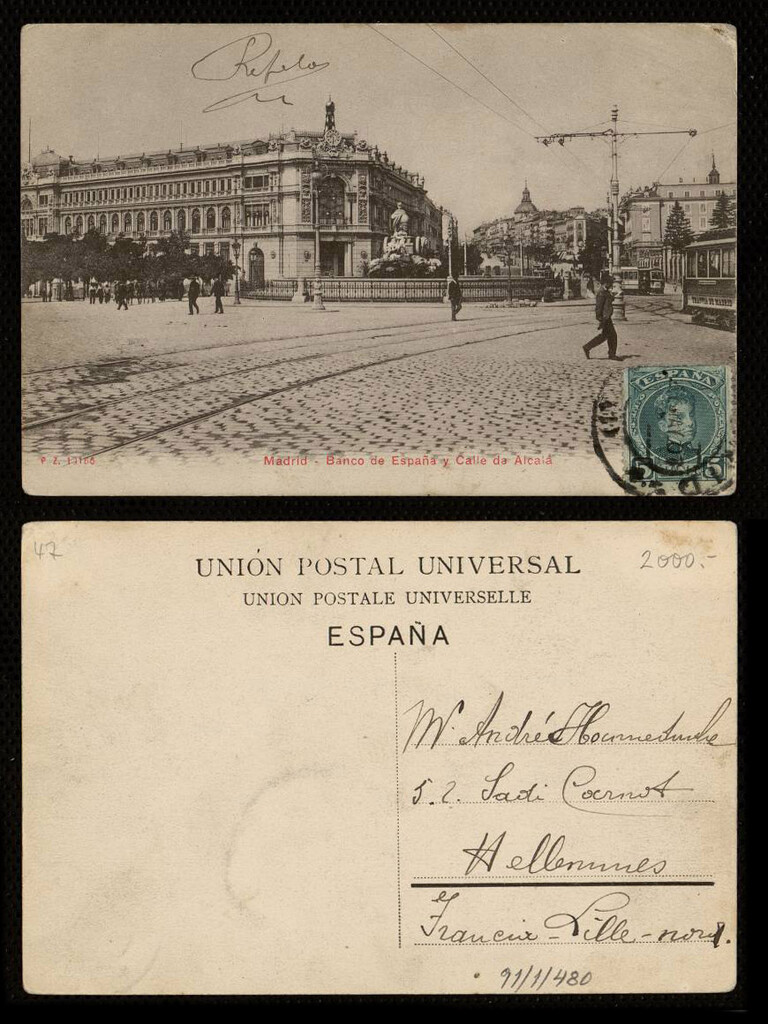 Repelao
ESPAÑA
5 5
P. Z. 13166
Madrid - Banco de España y Calle de Alcalá
47
2000.-
UNIÓN POSTAL UNIVERSAL
UNION POSTALE UNIVERSELLE
ESPAÑA
Mr. André
5.2. Sadi Carnot
Hellemmes
Francia - Lille - nord.
91/1/480